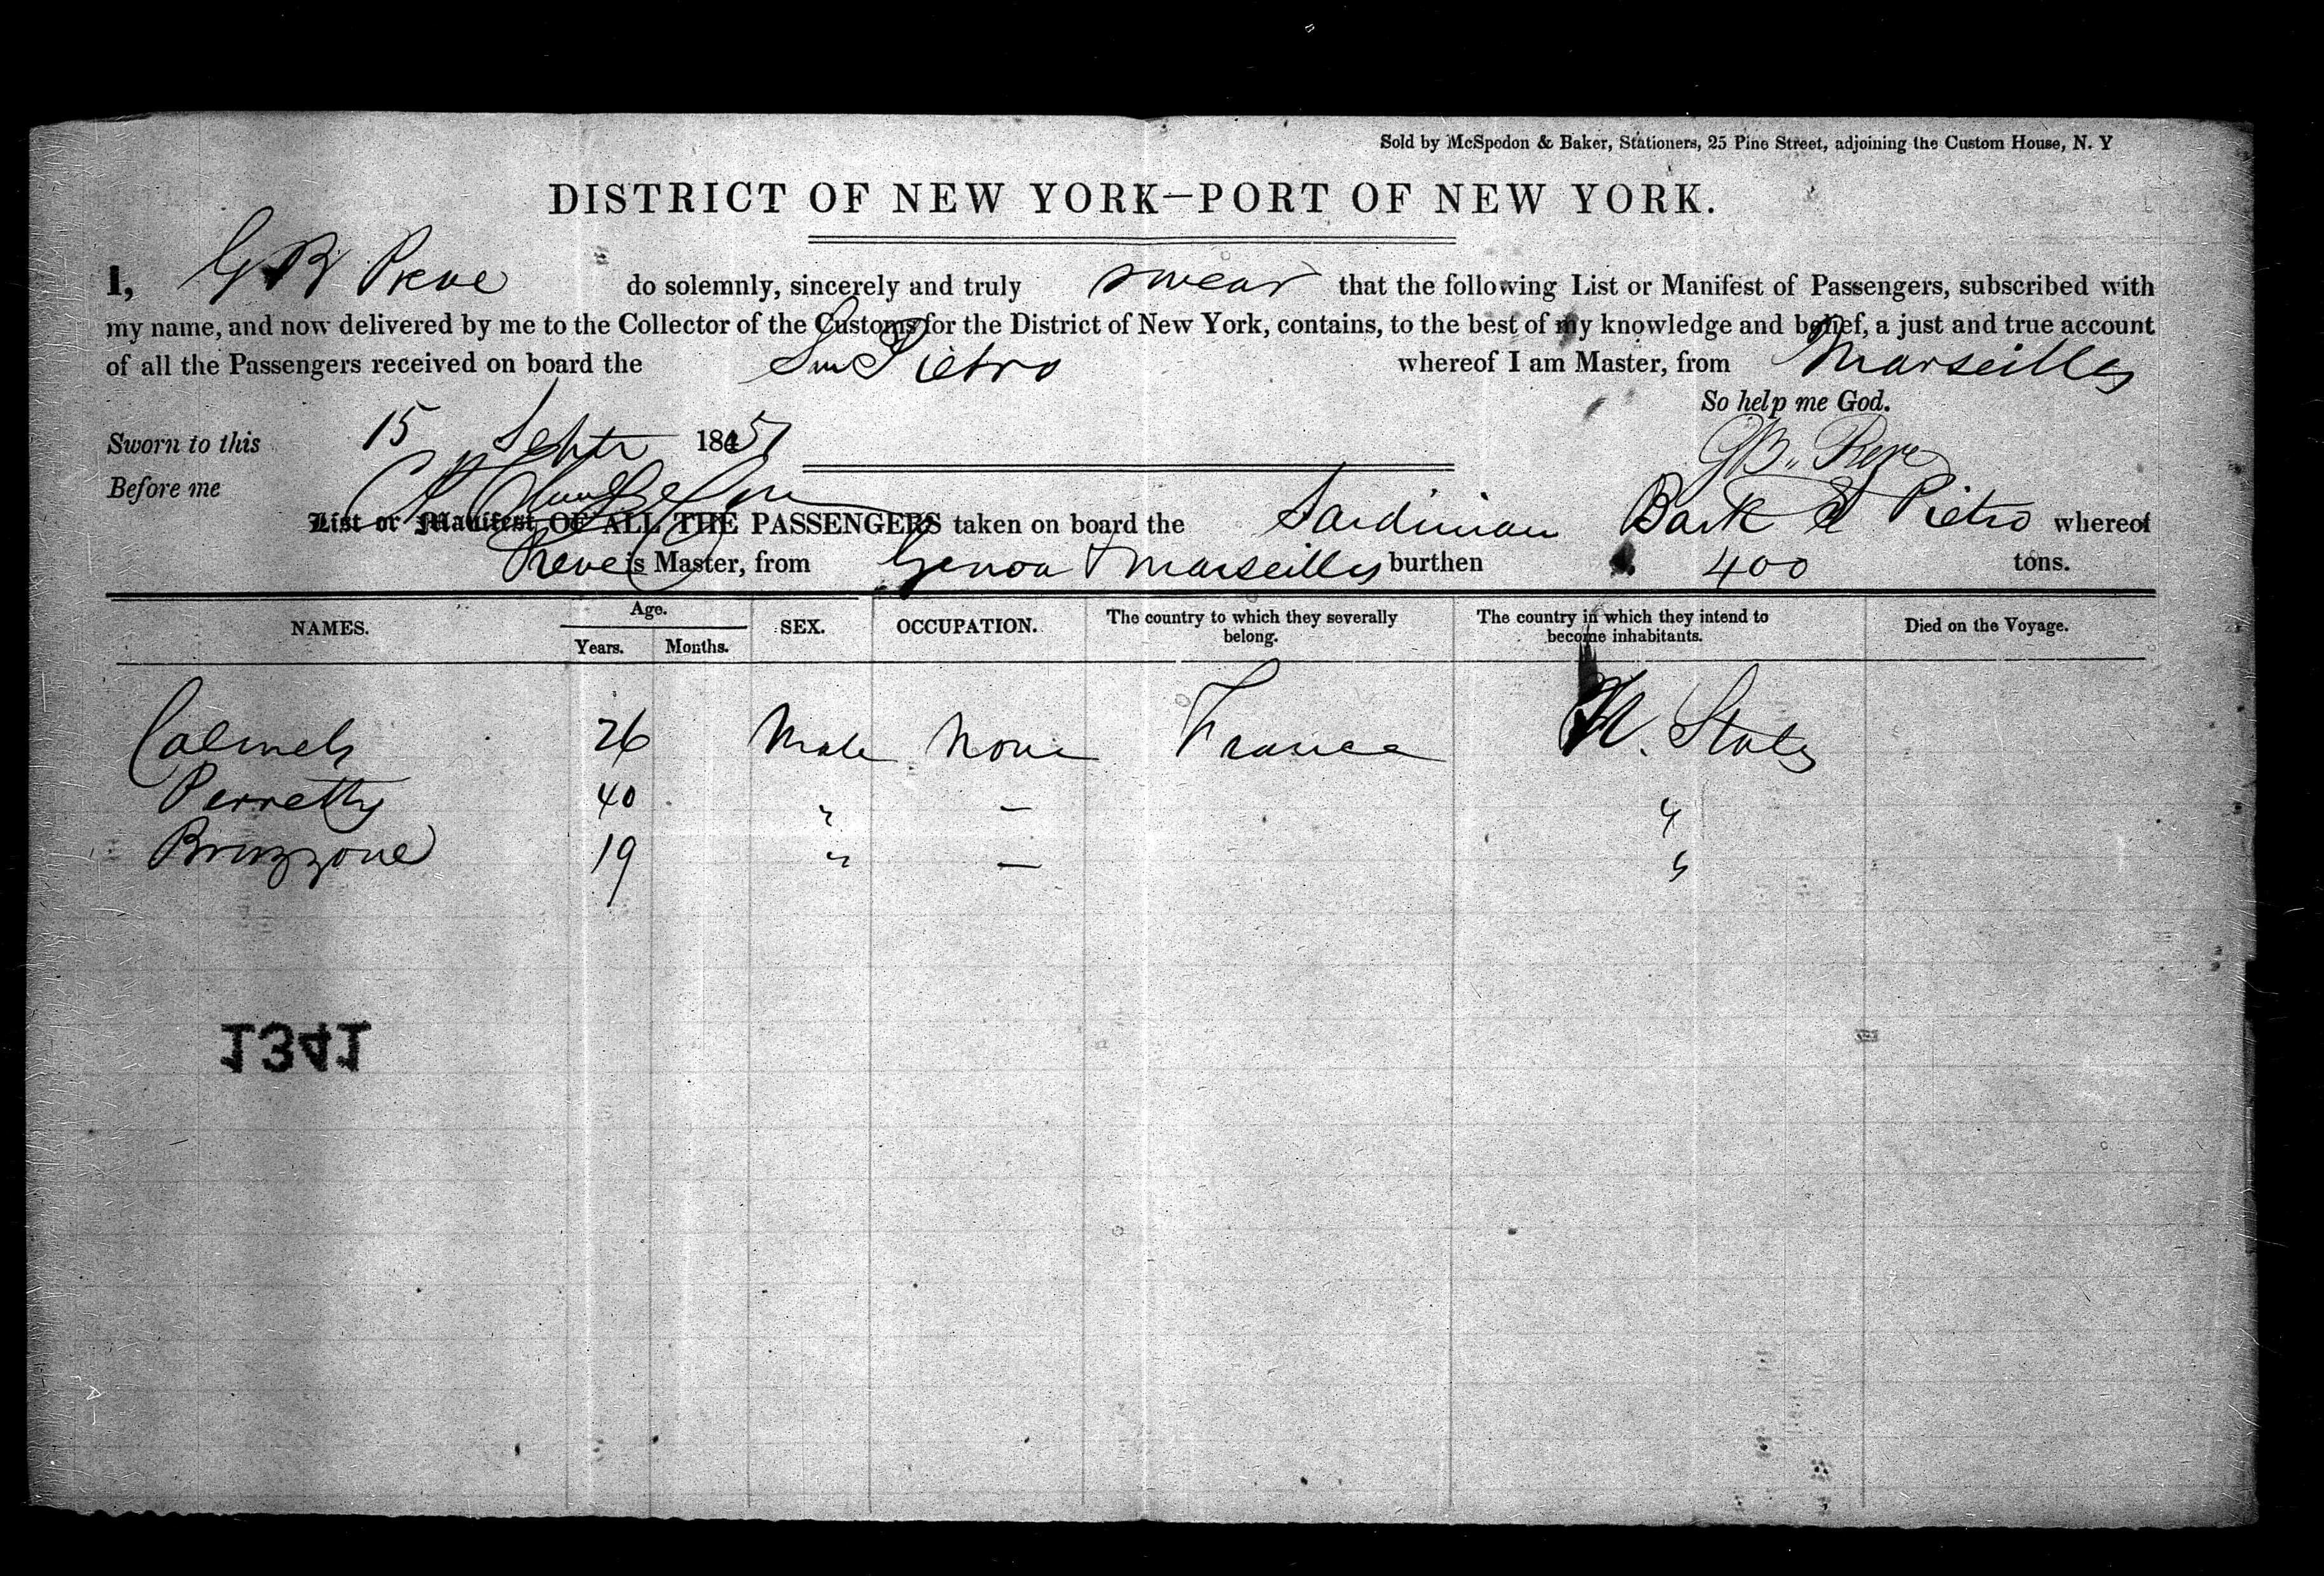 Sold by McSpedon & Baker, Stationers, 25 Pine Street, adjoining the Custom House, N. Y
DISTRICT OF NEW YORK—PORT OF NEW YORK.
I, G B Preve do solemnly, sincerely and truly swear that the following List or Manifest of Passengers, subscribed with
my name, and now delivered by me to the Collector of the Customs for the District of New York, contains, to the best of my knowledge and belief, a just and true account
of all the Passengers received on board the San Pietro whereof I am Master, from Marseilles
So help me God.
Sworn to this 15 Septr 1851
G B Preve
Before me
List or Manifest OF ALL THE PASSENGERS taken on board the Sardinian Bark S Pietro whereof
Preve is Master, from Genoa & Marseilles burthen 400 tons.
NAMES. Age. Years. Months. SEX. OCCUPATION. The country to which they severally belong. The country in which they intend to become inhabitants. Died on the Voyage.
Calmels 26 Male None France U. States
Perretty 40 " — "
Bruzzone 19 " — "
1341